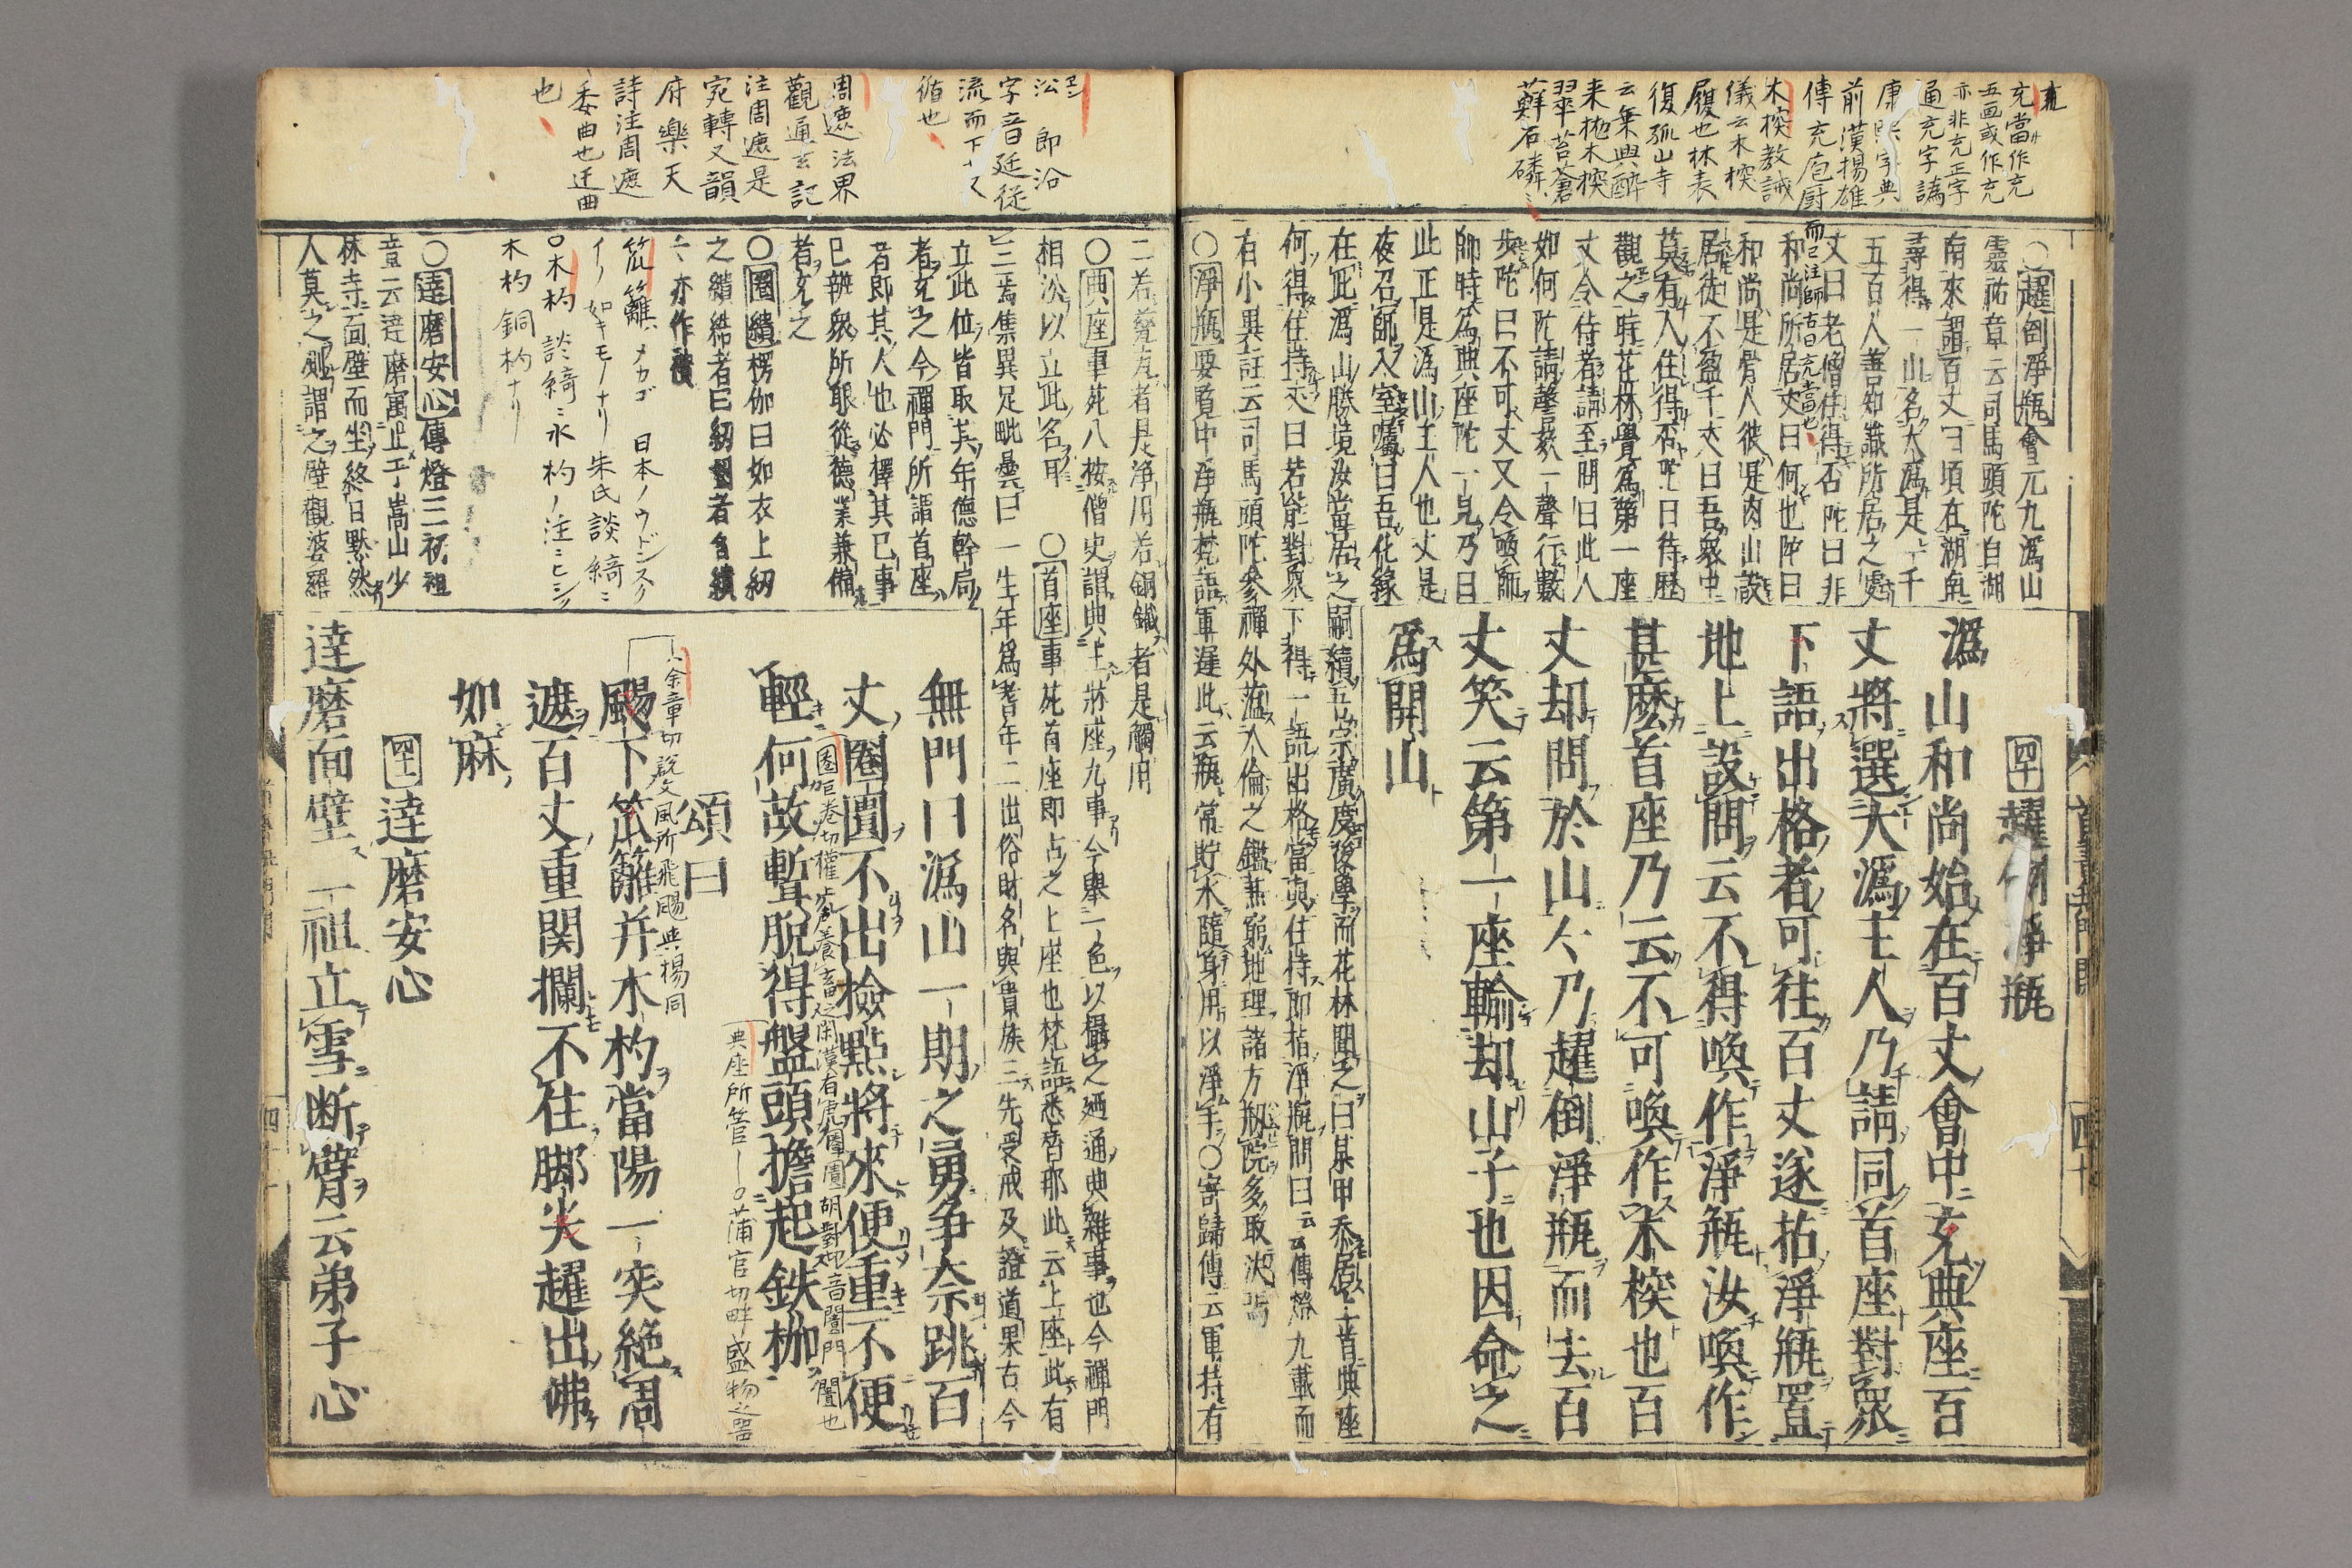 充
充當作充
五画或作充
亦非充正字
通充字譌
康熙字典
前漢揚雄
傳充庖厨
木𣔻教誡
儀云木𣔻
履也林表
復孤山寺
云乗興醉
来拋木𣔻
翠苔蒼
蘚石磷〻
○趯倒淨瓶會元九潙山
靈祐章云司馬頭陀自湖
南來謂百丈曰頃在湖南
尋得一山名大潙是一千
五百人善知識所居之處
丈曰老僧住得否陀曰非
和尚所居丈曰何也陀曰
和尚是骨人彼是肉山設
居徒不盈千丈曰吾衆中
莫有人住得否陀曰待歴
觀之時花林覺爲第一座
丈令侍者請至問曰此人
如何陀請謦欬一聲行數
步陀曰不可丈又令喚師
師時爲典座陀一見乃曰
此正是潙山主人也丈是
夜召師入室囑曰吾化緣
在此潙山勝境汝當居之嗣續吾宗廣度後學而花林聞之曰某甲忝居上首典座
何得住持丈曰若能對衆下得一語出格當與住持即指淨瓶問曰云云傳燈九載而
有小異註云司馬頭陀參禪外蘊人倫之鑑兼窮地理諸方剏院多取決焉
○淨瓶要覧中淨瓶梵語軍遲此云瓶常貯水隨身用以淨手○寄歸傳云軍持有
四十 趯倒淨瓶
潙山和尚始在百丈會中充典座百
丈將選大潙主人乃請同首座對衆
下語出格者可往百丈遂拈淨瓶置
地上設問云不得喚作淨瓶汝喚作
甚麽首座乃云不可喚作木𣔻也百
丈却問於山〻乃趯倒淨瓶而去百
丈笑云第一座輸却山子也因命之
爲開山
沿 即沿
字音延従
流而下又
循也
周遮法界
觀通玄記
注周遮是
宛轉又韻
府樂天
詩注周遮
委曲也迂曲
也
二若甆瓦者是淨用若銅鐵者是觸用
○典座事苑八按僧史謂典主牀座九事今舉一色以攝之廼通典雜事也今禪門
相沿以立此名耳 ○首座事苑首座即古之上座也梵語悉替那此云上座此有
三焉集異足毗曇曰一生年爲耆年二出俗財名與貴族三先受戒及證道果古今
立此位皆取其年德幹局
者充之今禪門所謂首座
者即其人也必擇其已事
已辦衆所服從德業兼備
者充之
○圈繢楞伽曰如衣上紉
之繢
亦作䙡
笊籬 メカゴ 日本ノウドンスクイノ如キモノナリ朱氏談綺ニ
○木杓 談綺ニ水杓ノ注ニヒシク
木杓銅杓ナリ
無門曰潙山一期之勇爭奈跳百
丈圈圚不出撿點將來便重不便
輕何故聻脱得盤頭擔起鉄枷
頌曰
颺下笊籬并木杓當陽一突絶周
遮百丈重関攔不住脚尖趯出佛
如麻
典座所管
○達磨安心傳燈三初祖
章云達磨寓止于嵩山少
林寺面壁而坐終日默然
人莫之測謂之壁觀婆羅
四十一 達磨安心
達磨面壁二祖立雪断臂云弟子心